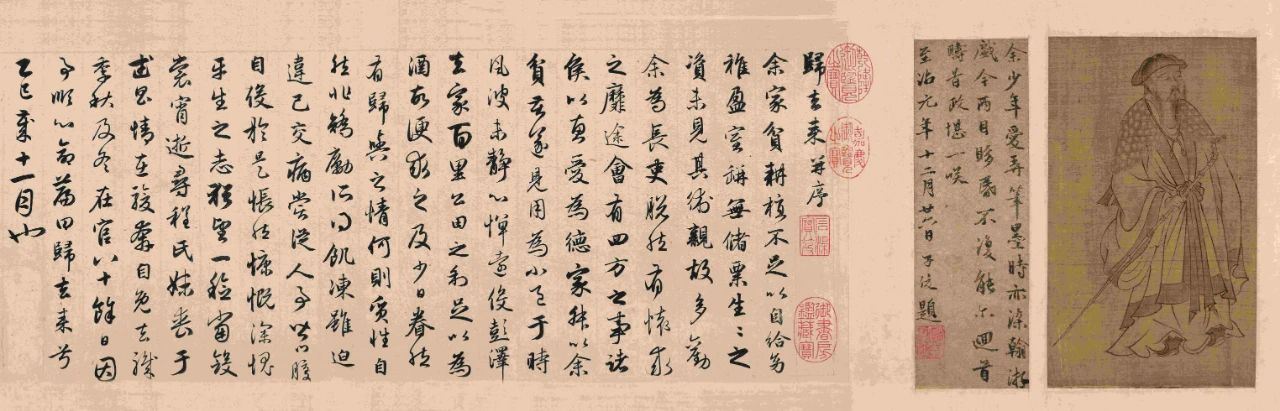 余少年愛弄筆墨時亦染翰游
戲今兩目眵昏不復能尔回首
疇昔政堪一咲
至治元年十二月廿六日子昂題
乾隆御覽之寶
嘉慶御覽之寶
石渠寶笈
御書房鑑藏寶
歸去來并序
余家貧耕植不足以自給幼
稚盈室缾無儲粟生生之
資未見其術親故多勸
余為長吏脫然有懷求
之靡途會有四方之事諸
侯以惠愛為德家叔以余
貧苦遂見用為小邑于時
風波未靜心憚遠役彭澤
去家百里公田之利足以為
酒故便求之及少日眷然
有歸與之情何則質性自
然非矯勵所得飢凍雖迫
違己交病嘗從人事皆口腹
自役於是悵然慷慨深愧
平生之志猶望一稔當斂
裳宵逝尋程氏妹喪于
武昌情在駿奔自免去職
季秋及冬在官八十餘日因
事順心命篇曰歸去來兮
乙巳歲十一月也